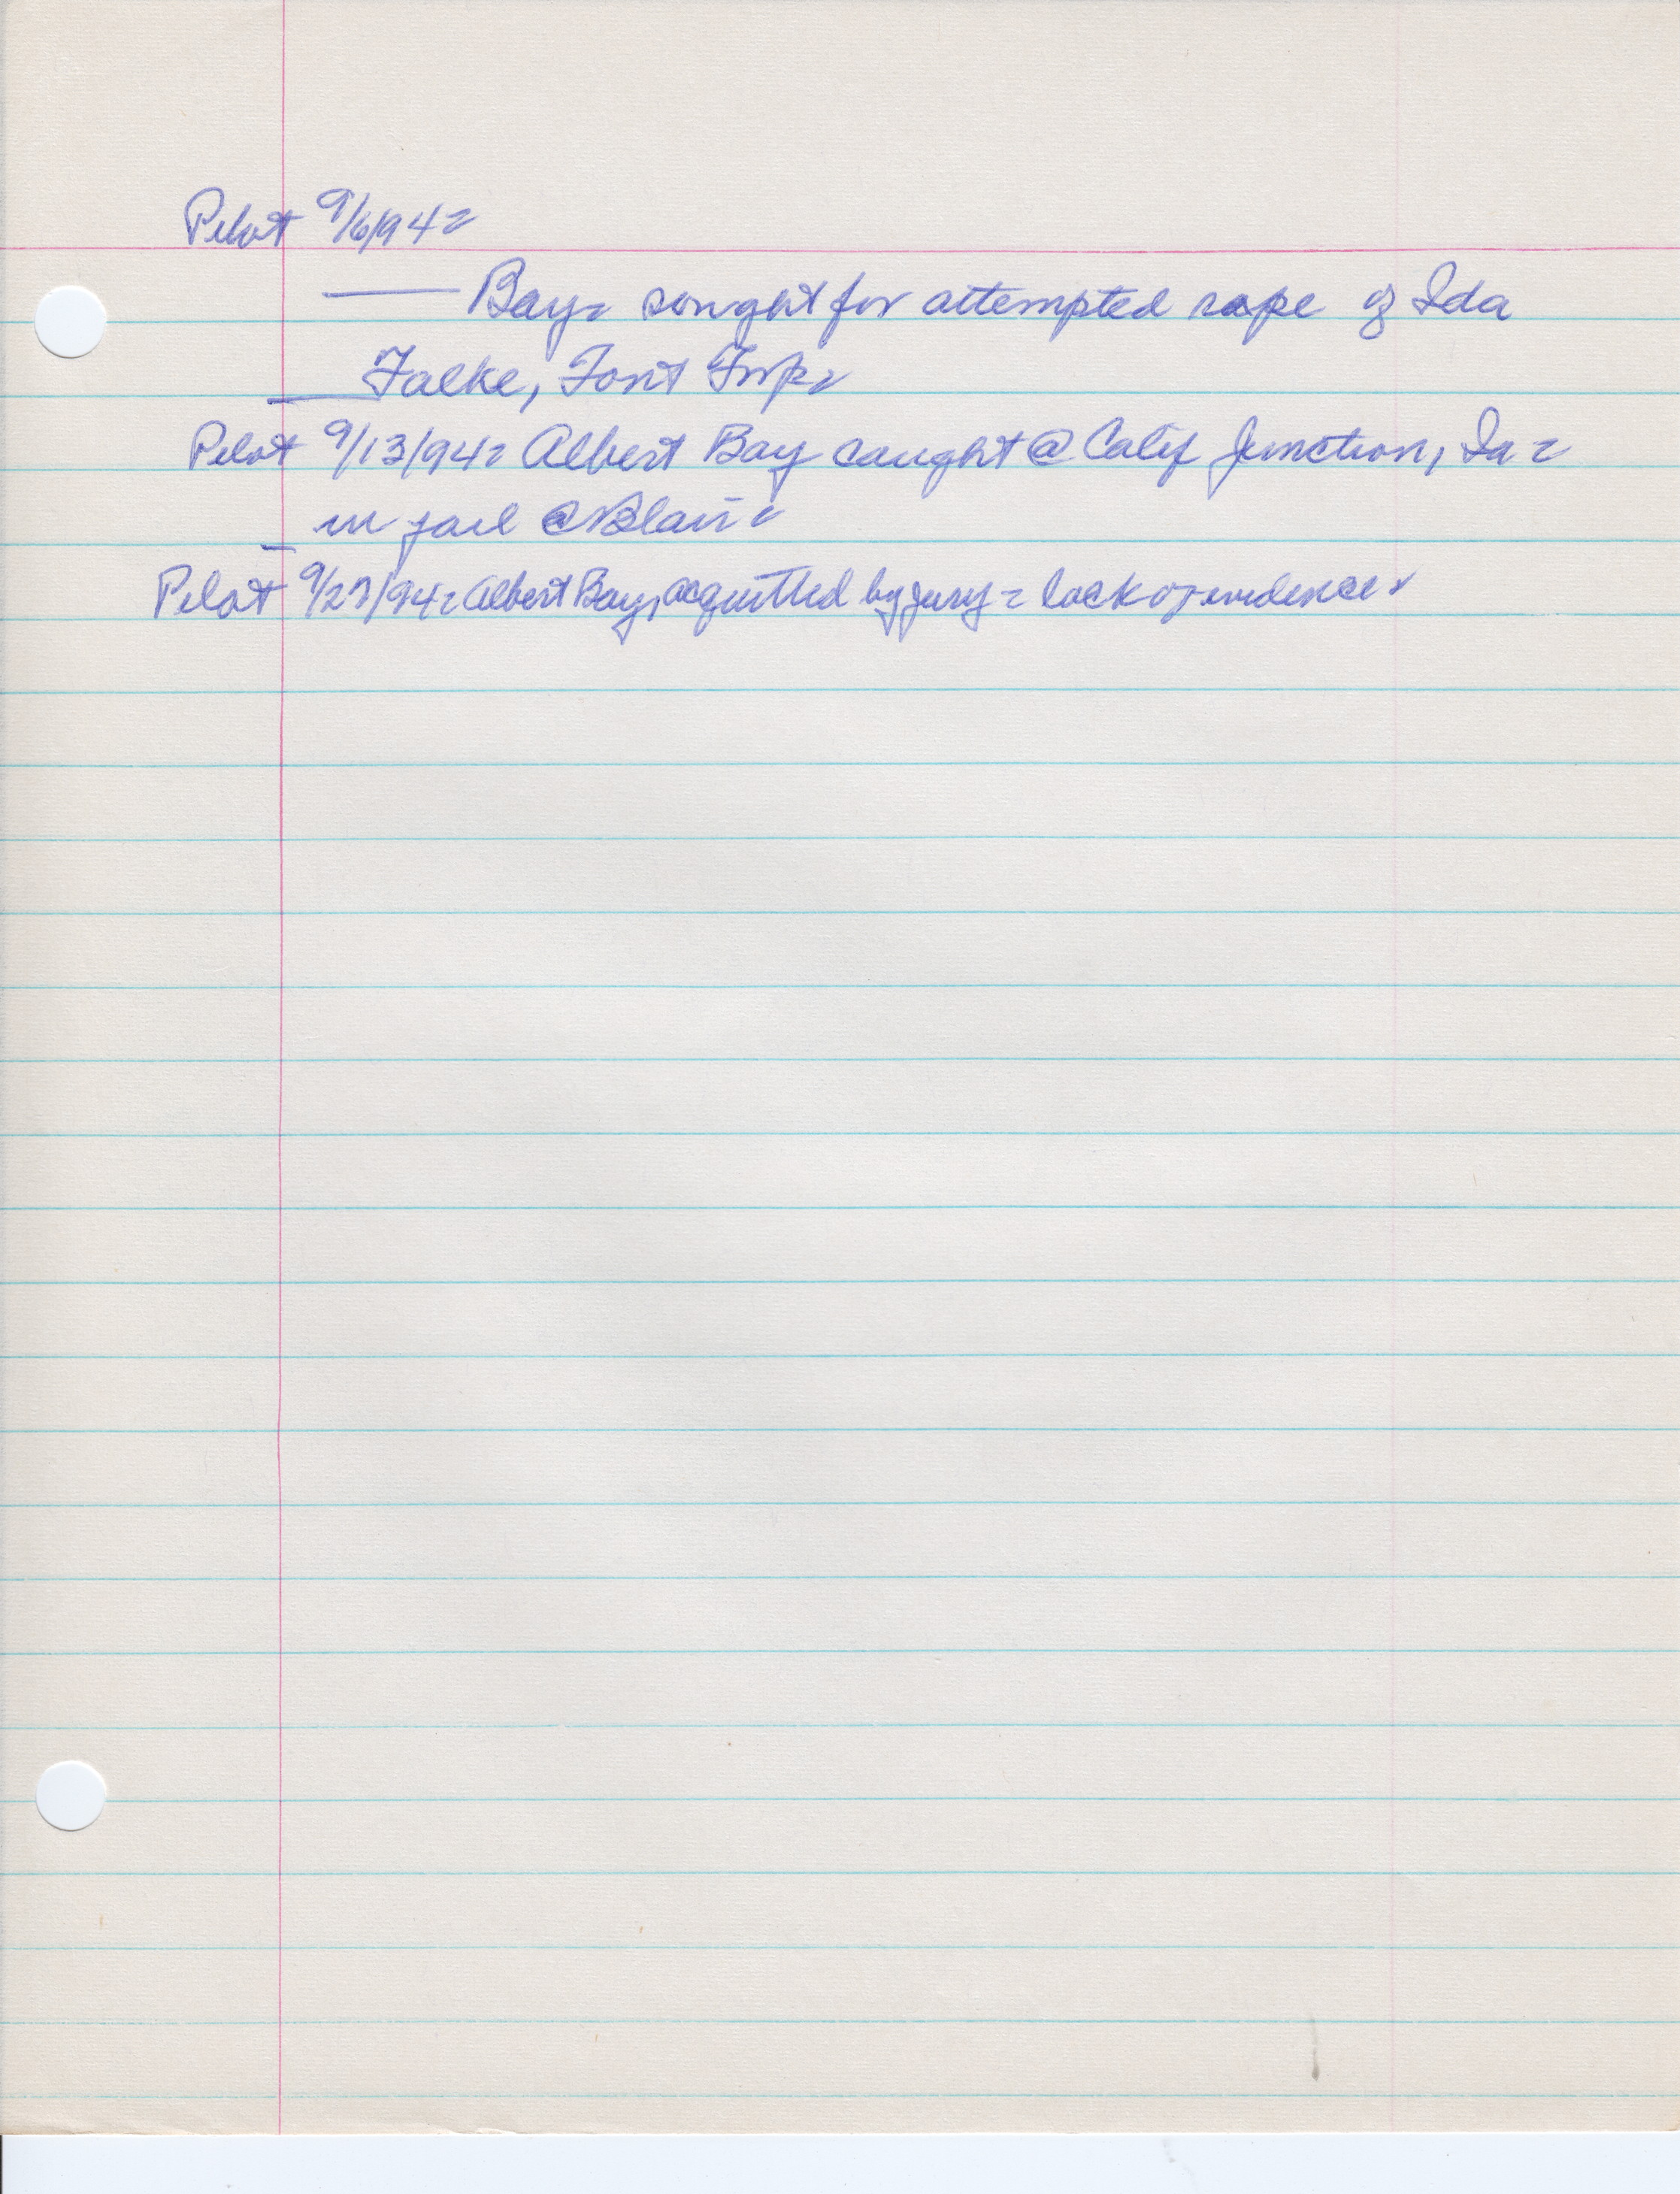 Pilot 9/6/94 =
—— Bay = sought for attempted rape of Ida
__ Falke, Font Twp =
Pilot 9/13/94 = Albert Bay caught @ Calif Junction, Ia =
_ in jail @ Blair =
Pilot 9/27/94 = Albert Bay, acquitted by jury = lack of evidence =